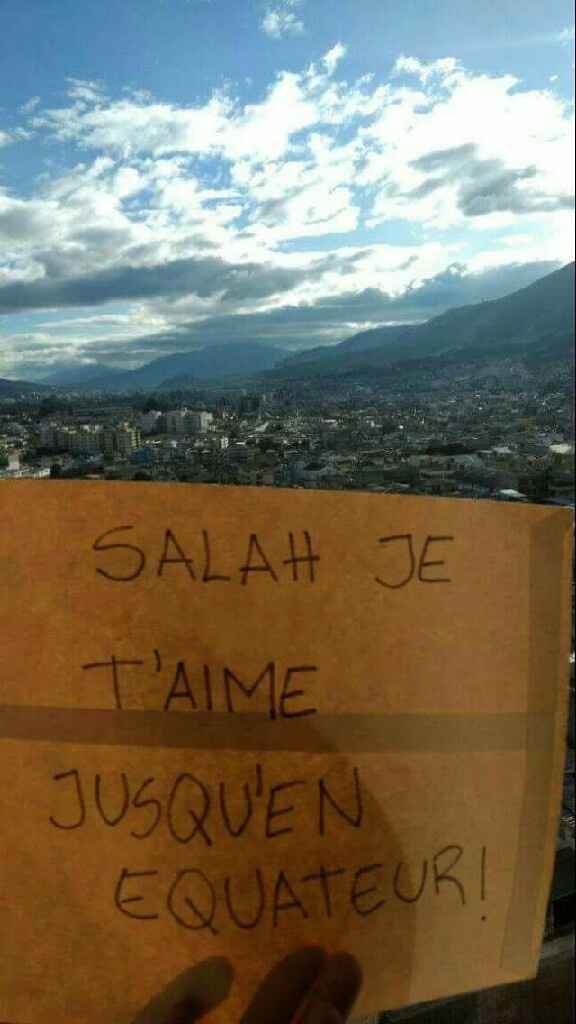 SALAH JE
T'AIME
JUSQU'EN
EQUATEUR!